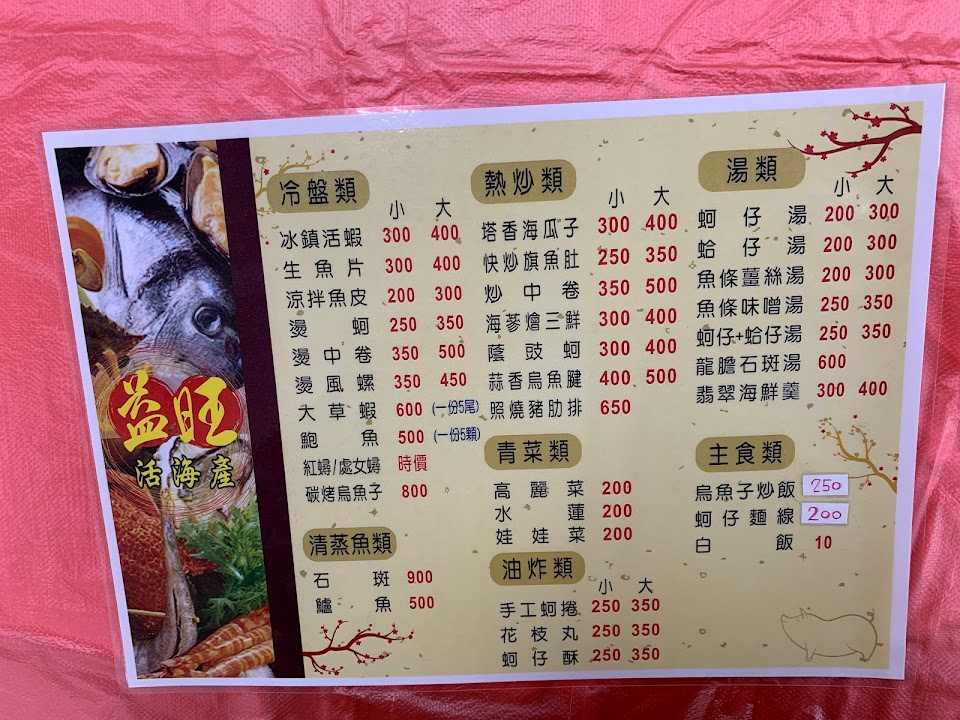 益旺
活海產
冷盤類
小 大
冰鎮活蝦 300 400
生魚片 300 400
涼拌魚皮 200 300
燙蚵 250 350
燙中卷 350 500
燙風螺 350 450
大草蝦 600 (一份5尾)
鮑魚 500 (一份5顆)
紅蟳/處女蟳 時價
碳烤烏魚子 800
清蒸魚類
石斑 900
鱸魚 500
熱炒類
小 大
塔香海瓜子 300 400
快炒旗魚肚 250 350
炒中卷 350 500
海蔘燴三鮮 300 400
蔭豉蚵 300 400
蒜香烏魚腱 400 500
照燒豬肋排 650
青菜類
高麗菜 200
水蓮 200
娃娃菜 200
油炸類
小 大
手工蚵捲 250 350
花枝丸 250 350
蚵仔酥 250 350
湯類
小 大
蚵仔湯 200 300
蛤仔湯 200 300
魚條薑絲湯 200 300
魚條味噌湯 250 350
蚵仔+蛤仔湯 250 350
龍膽石斑湯 600
翡翠海鮮羹 300 400
主食類
烏魚子炒飯 250
蚵仔麵線 200
白飯 10